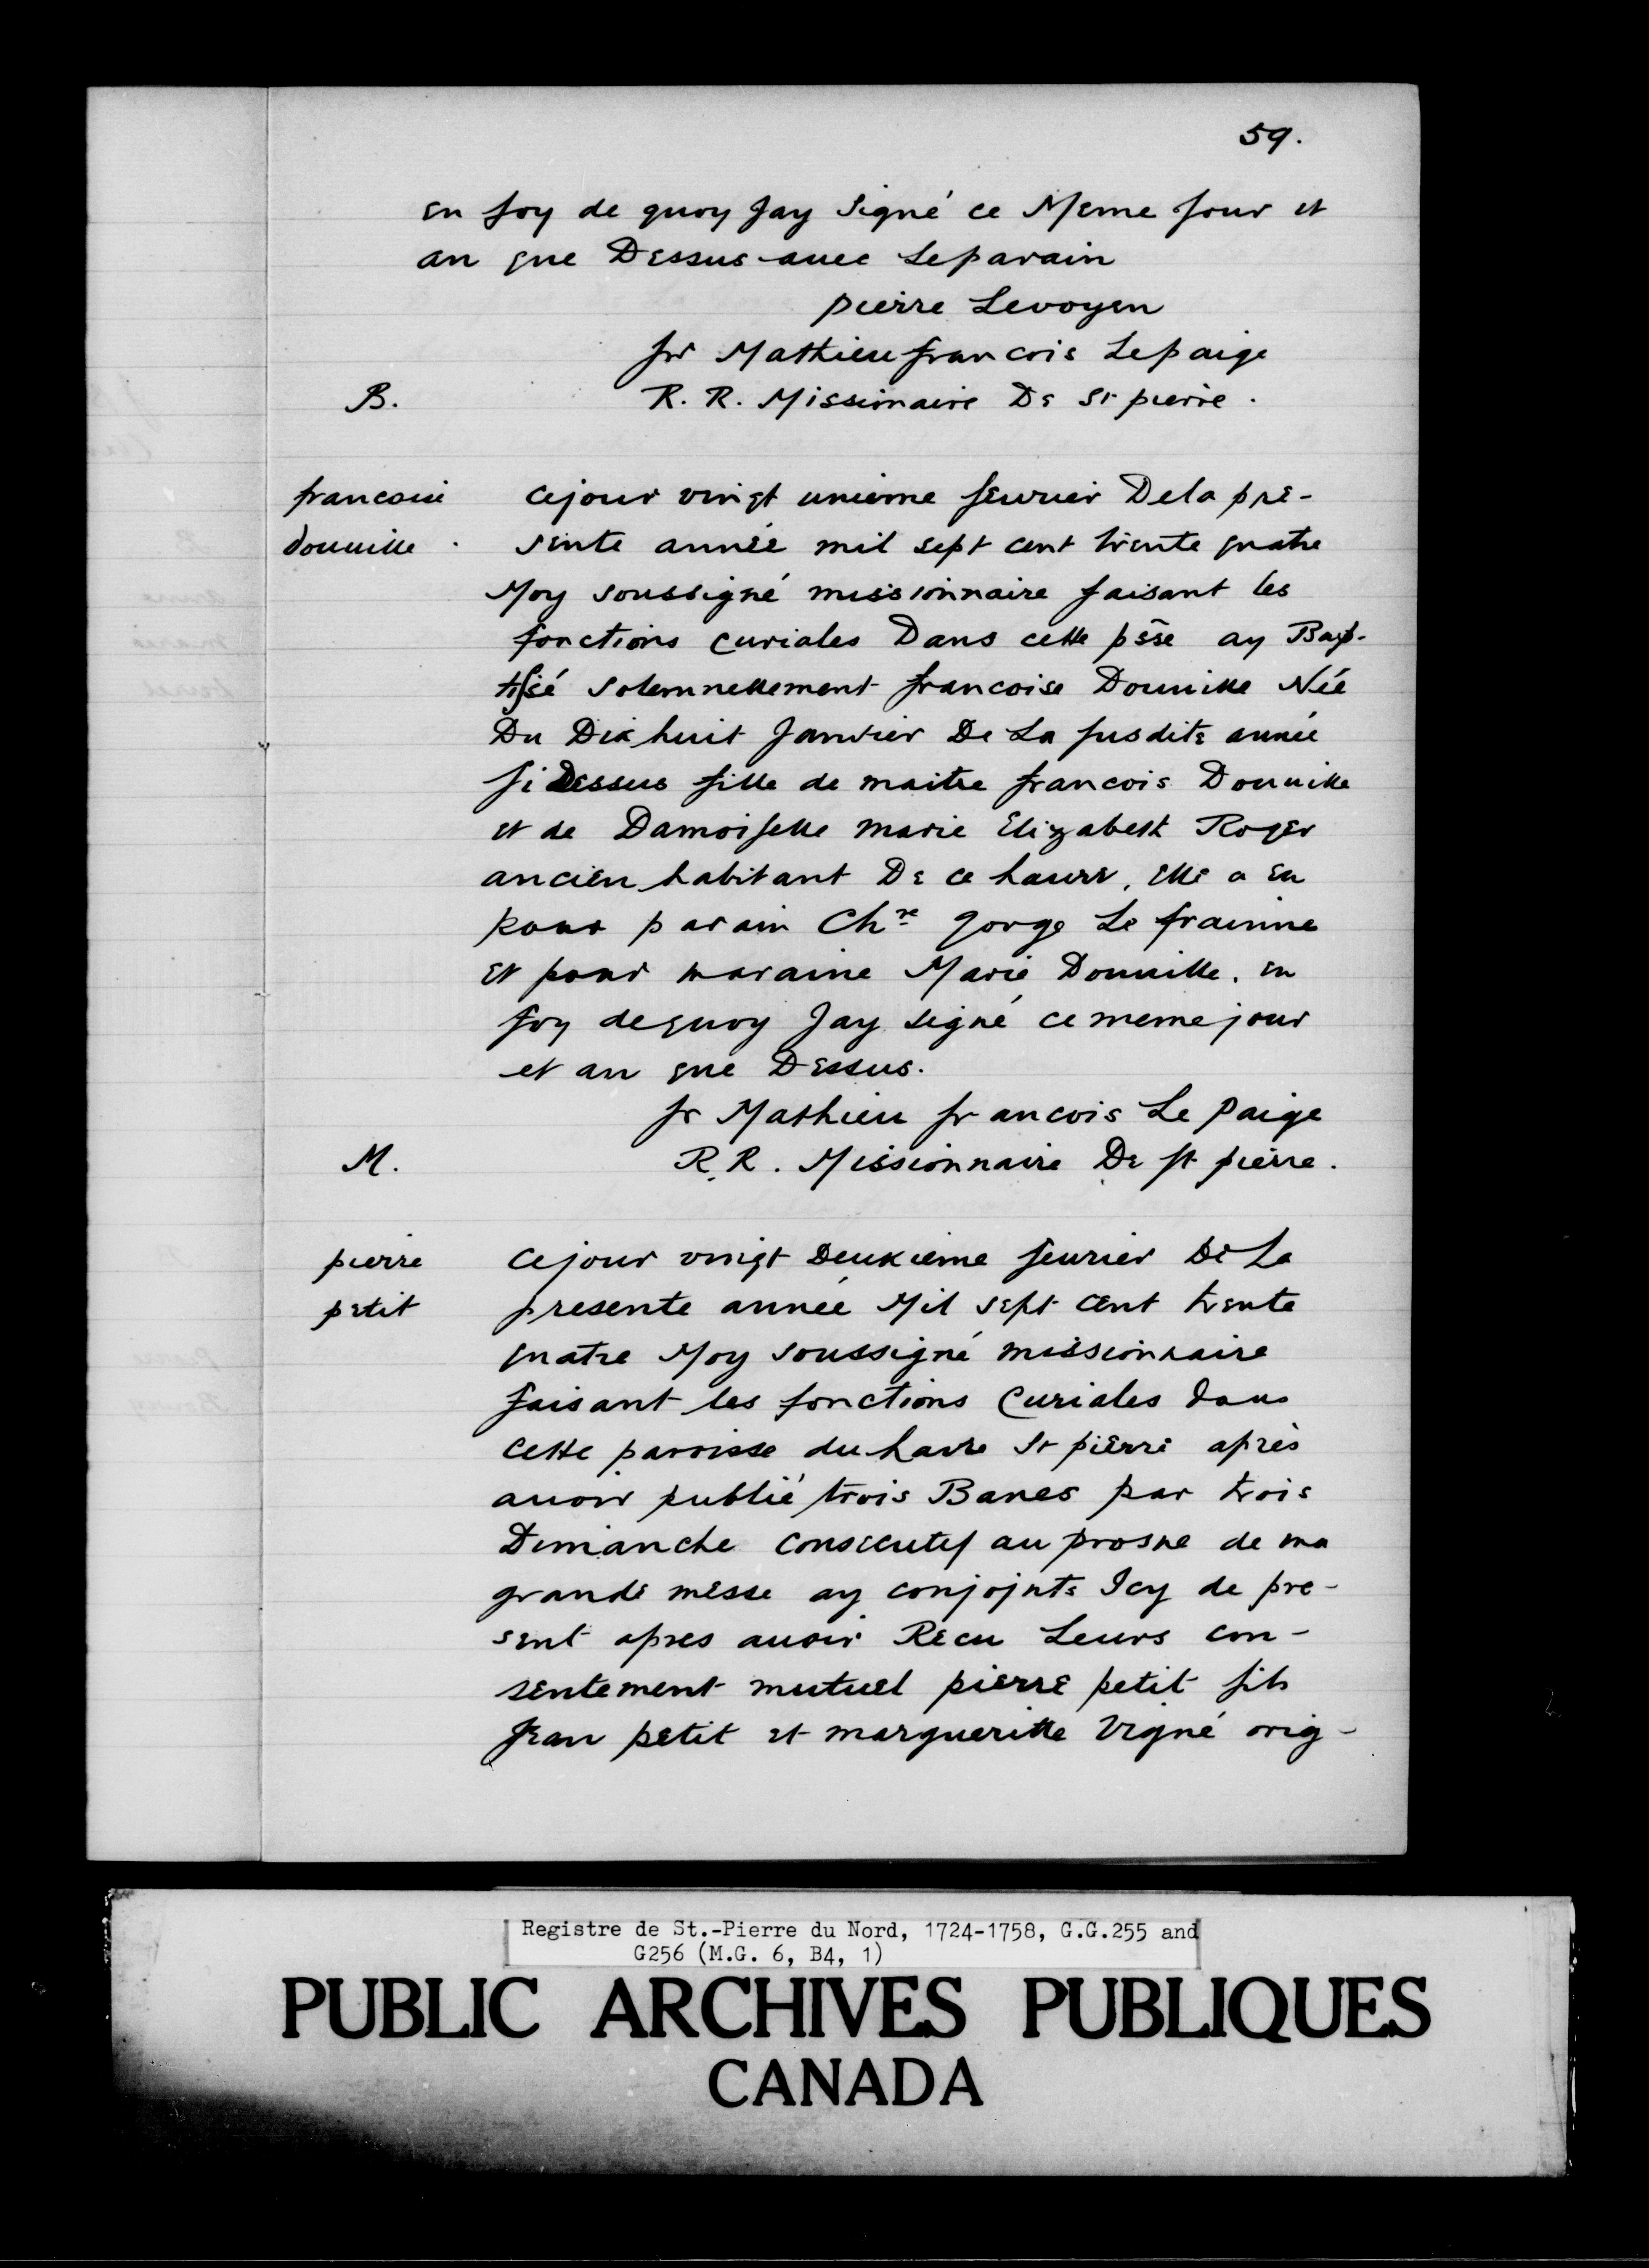 59.
en foy de quoy Jay Signé ce Meme Jour et
an que Dessus avec Leparain
pierre Levoyen
fr Mathieu francois Lepaige
B. R. R. Missionaire De St pierre.
francoise cejour vingt unieme feurier Dela pre-
douuille. sente année mil sept cent trente quatre
Moy soussigné missionnaire faisant les
fonctions curiales Dans cette psse ay Bap-
tisé solemnellement francoise Douuille Née
Du Dix huit Janvier De La susdite année
si Dessus fille de maitre francois Douuille
et de Damoiselle marie Elizabeth Roger
ancien habitant De ce haure, elle a eu
pour parain Chre Jorge Le
et pour maraine Marie Douuille. en
foy dequoy Jay signé ce meme jour
et an que Dessus.
fr Mathieu francois Le paige
M. R. R. Missionnaire De st pierre.
pierre cejour vingt Deuxieme feurier De La
petit presente année Mil sept cent trente
quatre Moy soussigné missionnaire
faisant les fonctions curiales dans
cette paroisse du havre st pierre après
auoir publié trois Banes par trois
Dimanche consecutif au prosne de ma
grande messe ay conjojnts Icy de pre-
sent apres auoir Recu Leurs con-
sentement mutuel pierre petit fils
Jean petit et margueritte Vigné orig-
Registre de St.-Pierre du Nord, 1724-1758, G.G.255 and
G256 (M.G. 6, B4, 1)
PUBLIC ARCHIVES PUBLIQUES
CANADA